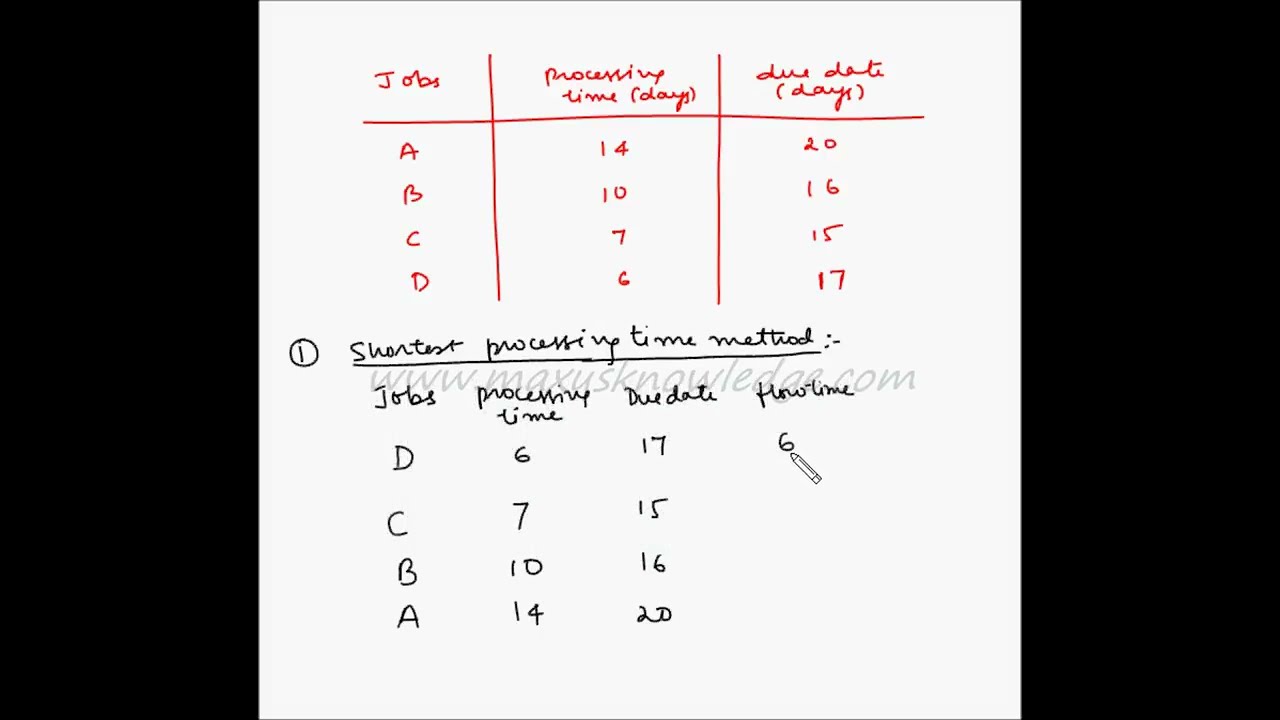 Jobs processing time (days) due date (days)
A 14 20
B 10 16
C 7 15
D 6 17
① Shortest processing time method :-
www.maxusknowledge.com
Jobs processing time Due date flow time
D 6 17 6
C 7 15
B 10 16
A 14 20